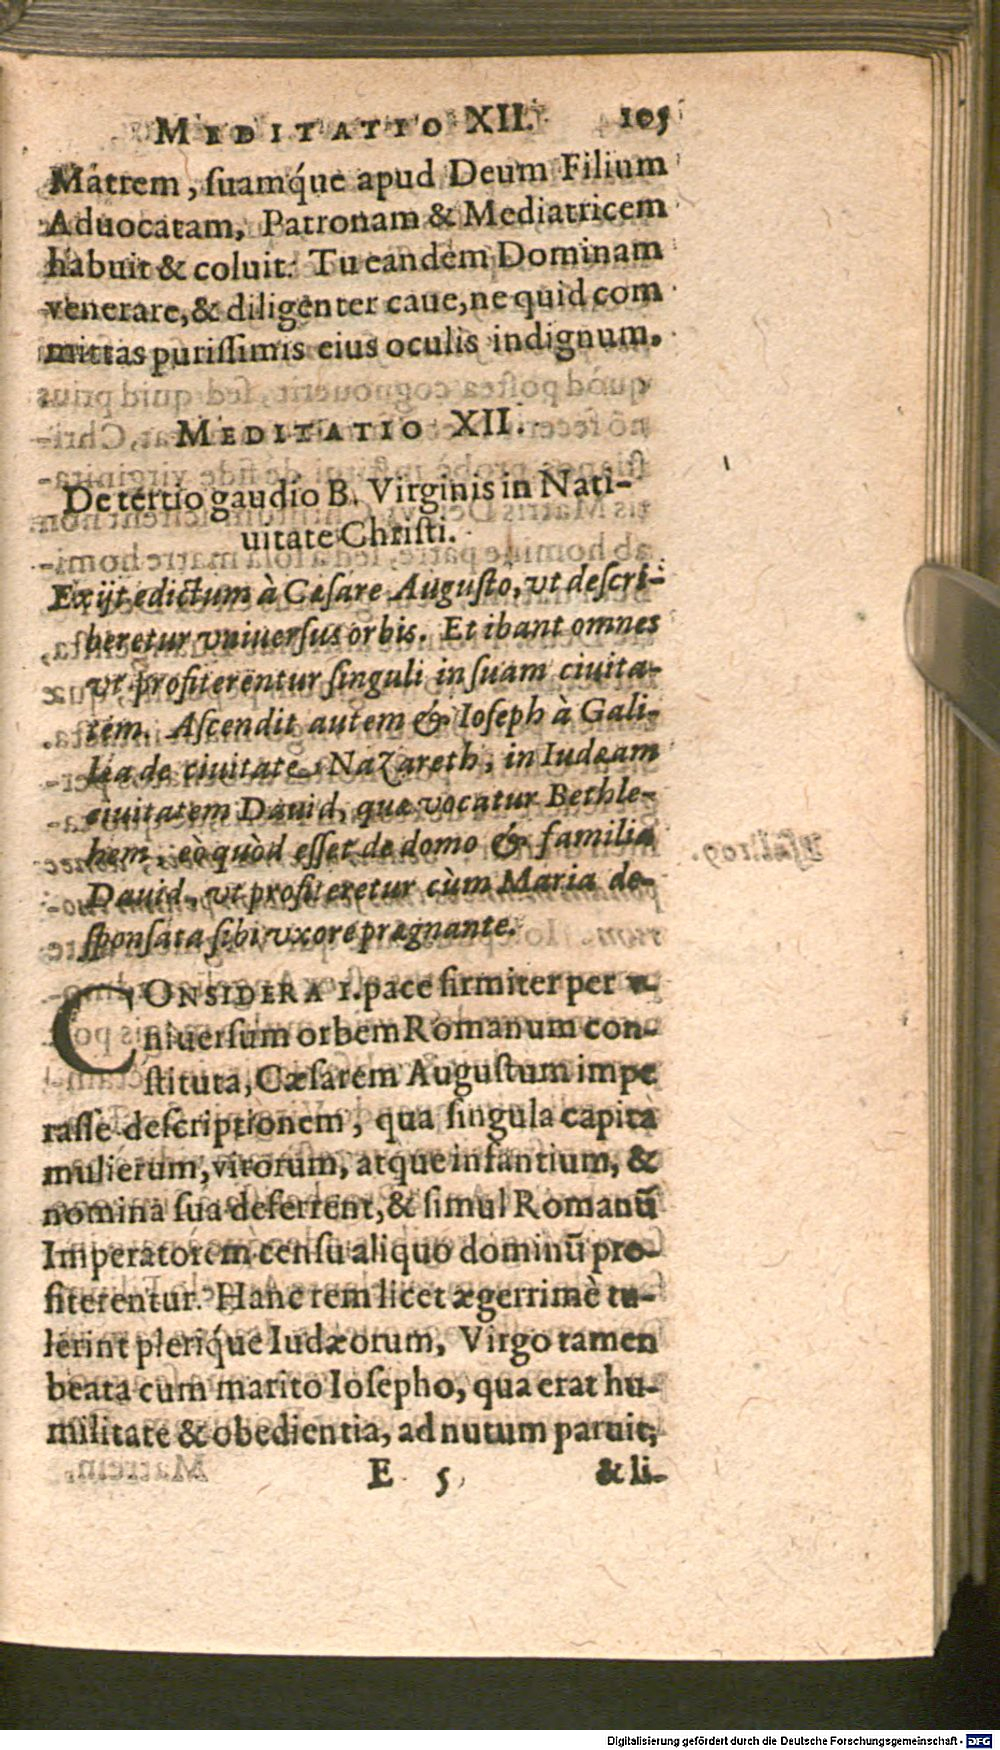 MEDITATIO XII. 105
Matrem, ſuamq́ue apud Deum Filium
Aduocatam, Patronam & Mediatricem
habuit & coluit. Tu eandem Dominam
venerare, & diligenter caue, ne quid com
mittas puriſſimis eius oculis indignum.
MEDITATIO XII.
De tertio gaudio B. Virginis in Nati-
uitate Chriſti.
Exijt edictum à Ceſare Auguſto, vt deſcri-
beretur vniuerſus orbis. Et ibant omnes
vt profiterentur ſinguli in ſuam ciuita-
tem. Aſcendit autem & Ioſeph à Gali-
lea de ciuitate Nazareth, in Iudæam
ciuitatem Dauid, quæ vocatur Bethle-
hem, eò quòd eſſet de domo & familia
Dauid, vt profiteretur cùm Maria de-
ſponſata ſibi vxore prægnante.
CONSIDERA 1. pace firmiter per v-
niuerſum orbem Romanum con-
ſtituta, Cæſarem Auguſtum impe
raſſe deſcriptionem, qua ſingula capita
mulierum, virorum, atque infantium, &
nomina ſua deferrent, & ſimul Romanū
Imperatorem cenſu aliquo dominū pro-
fiterentur. Hanc rem licet ægerrimè tu-
lerint pleriq́ue Iudæorum, Virgo tamen
beata cum marito Ioſepho, qua erat hu-
militate & obedientia, ad nutum paruit,
E 5 & li-
Digitalisierung gefördert durch die Deutsche Forschungsgemeinschaft - DFG